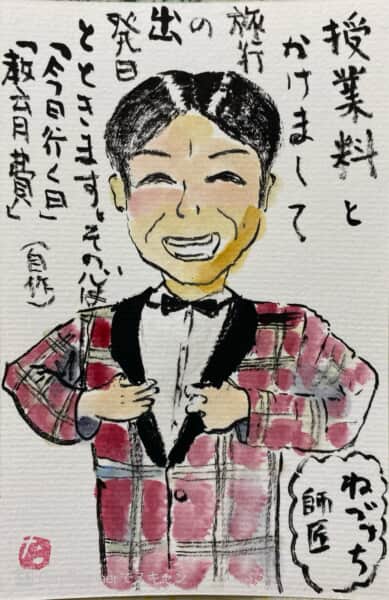 授業料と
かけまして
旅行
の
出
発日
とときます。その心は
「今日行く日」
「教育費」
(自作)
ねづっち
師匠